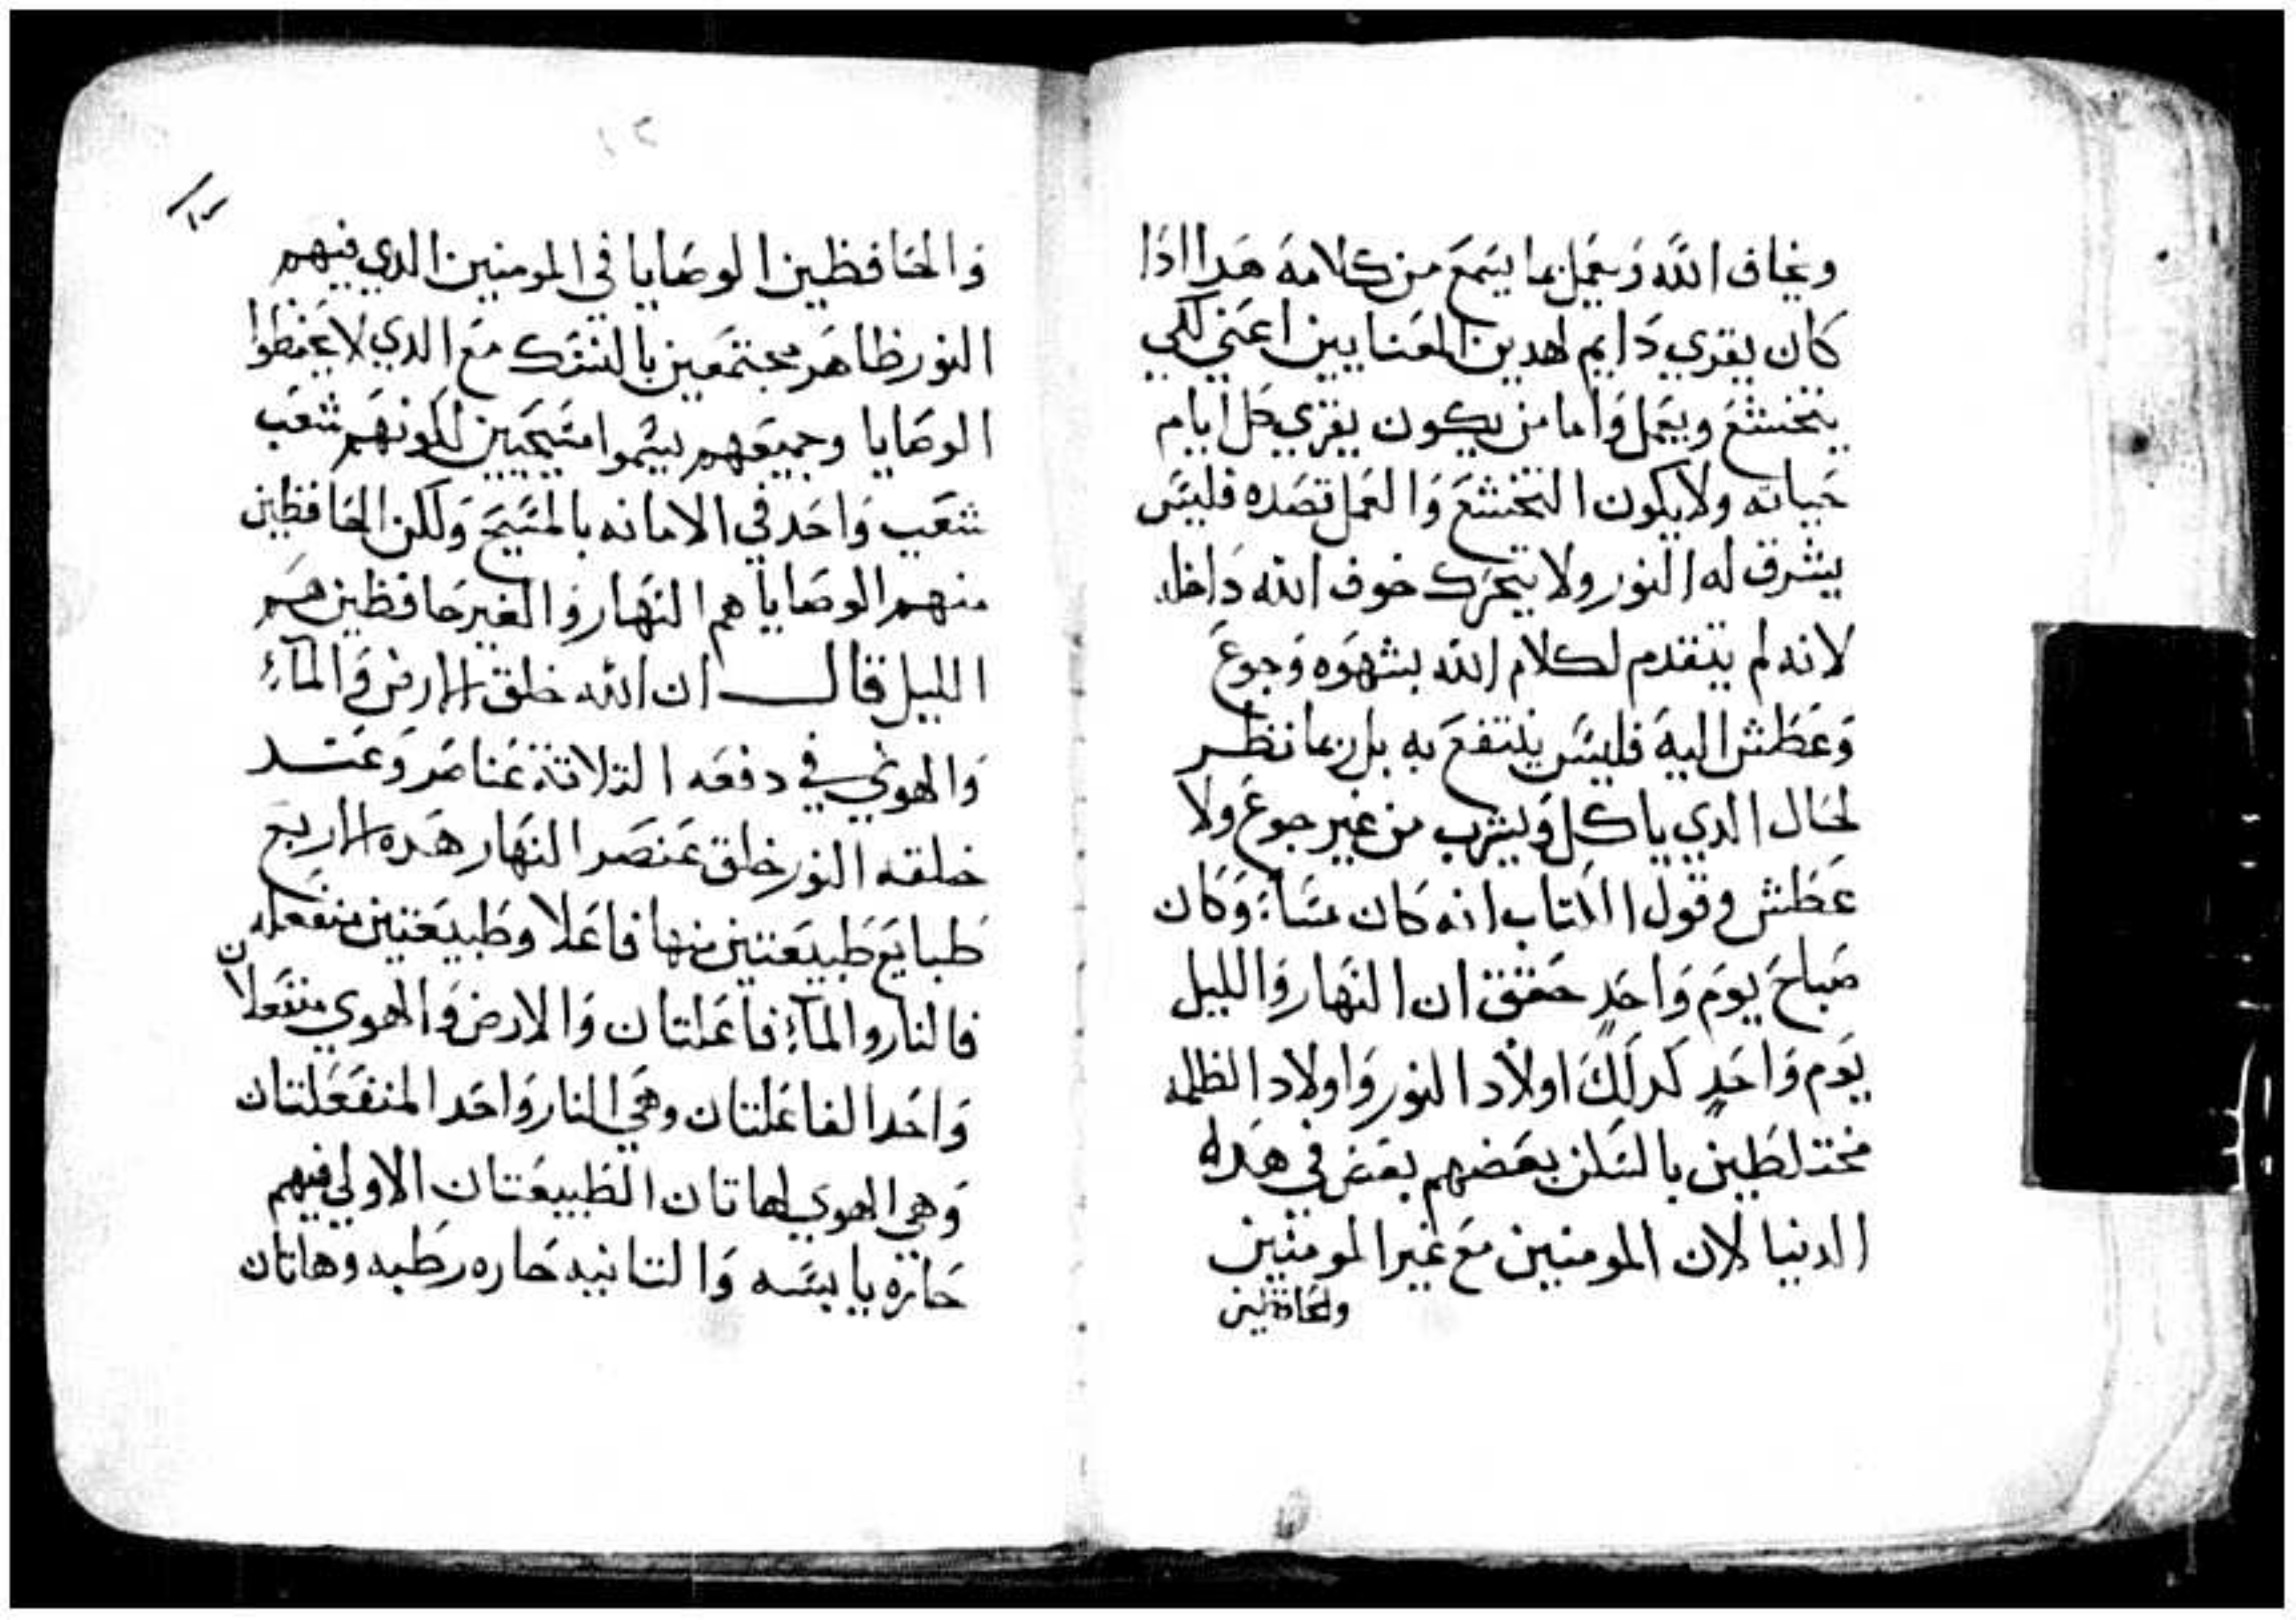 ويخاف الله ويعمل بما يسمع من كلامه هدا ادا
كان يقري دايم لهدين المعنايين اعني لكي
يتخشع ويعمل واما من يكون يقري كل ايام
حياته ولا يكون التخشع والعمل قصده فليس
يشرق له النور ولا يتحرك خوف الله داخله
لانه لم يتقدم لكلام الله بشهوه وجوع
وعطش اليه فليس ينتفع به بل ربما نظر
لحال الدي ياكل ويشرب من غير جوع ولا
عطش وقول الكتاب انه كان مساء وكان
صباح يوم واحد حقق ان النهار والليل
يوم واحد كدلك اولاد النور واولاد الظلمه
مختلطين بالسكن بعضهم بعض في هده
الدنيا لان المومنين مع غير المومنين
والحافظين
١٢
والحافظين الوصايا في المومنين الدي فيهم
النور ظاهر مجتمعين مع الدي لا يحفظوا
الوصايا وجميعهم يسموا مسيحيين لكونهم شعب
شعب واحد في الامانه بالمسيح ولكن الحافظين
منهم الوصايا هم النهار والغير حافظين هم
الليل قال ان الله خلق الارض والماء
والهوي في دفعه التلاتة عناصر وعند
خلقه النور خلق عنصر النهار هده الاربع
طبايع طبيعتين منها فاعلا وطبيعتين منفعله
فالنار والماء فاعلتان والارض والهوي منفعلان
واحد الفاعلتان وهي النار واحد المنفعلتان
وهي الهوي لهاتان الطبيعتان الاولي فيهم
حاره يابسه والتانيه حاره رطبه وهاتان